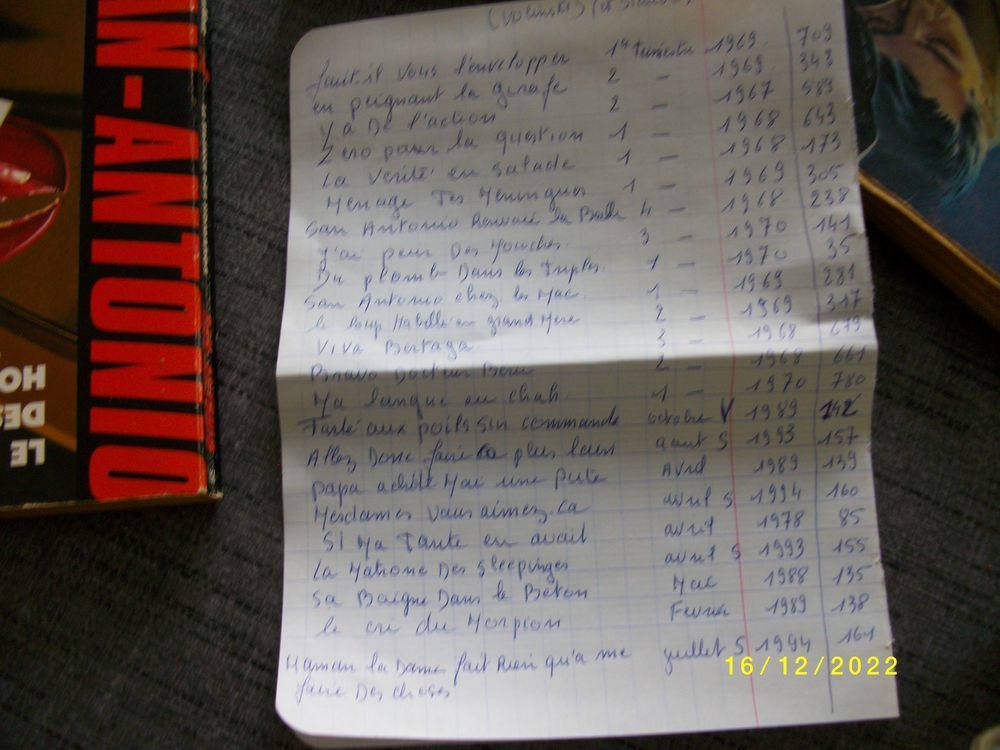 (Wolinski)
faut il vous l'envelopper 1er trimestre 1969. 709
en peignant la girafe 2 - 1969. 343
Y a De l'action 2 - 1967 589
Zero pour la question 1 - 1968 643
La Verité en Salade 1 - 1968 173
Menage Tes Meninges 1 - 1969 305
San Antonio Renvoie la Balle 4 - 1968 238
J'ai peur Des Mouches. 3 - 1970 141
Du plomb Dans les Tripes. 1 - 1970 35
San Antonio chez les Mac. 1 - 1969 281
le loup Habillé en grand Mère 2 - 1969 317
Viva Bertaga 3 - 1968 679
Bravo Docteur Beru 2 - 1968 661
Ma langue au chah. 1 - 1970 780
Tarte aux poils sur commande octobre V 1989 142
Allez Donc faire ça plus loin aout S 1993 157
papa achète Moi une pute Avril 1989 139
Mesdames vous aimez ca avril S 1994 160
Si Ma Tante en avait avril 1978 85
La Matrone Des Sleepinges avril S 1993 155
Sa Baigne Dans le Béton Mac 1988 135
le cri du Morpion Fevrier 1989 138
Maman la Dame fait Rien qu'a me juillet S 1994 161
faire Des choses
16/12/2022
AN-ANTONIO
LE
DES
HO